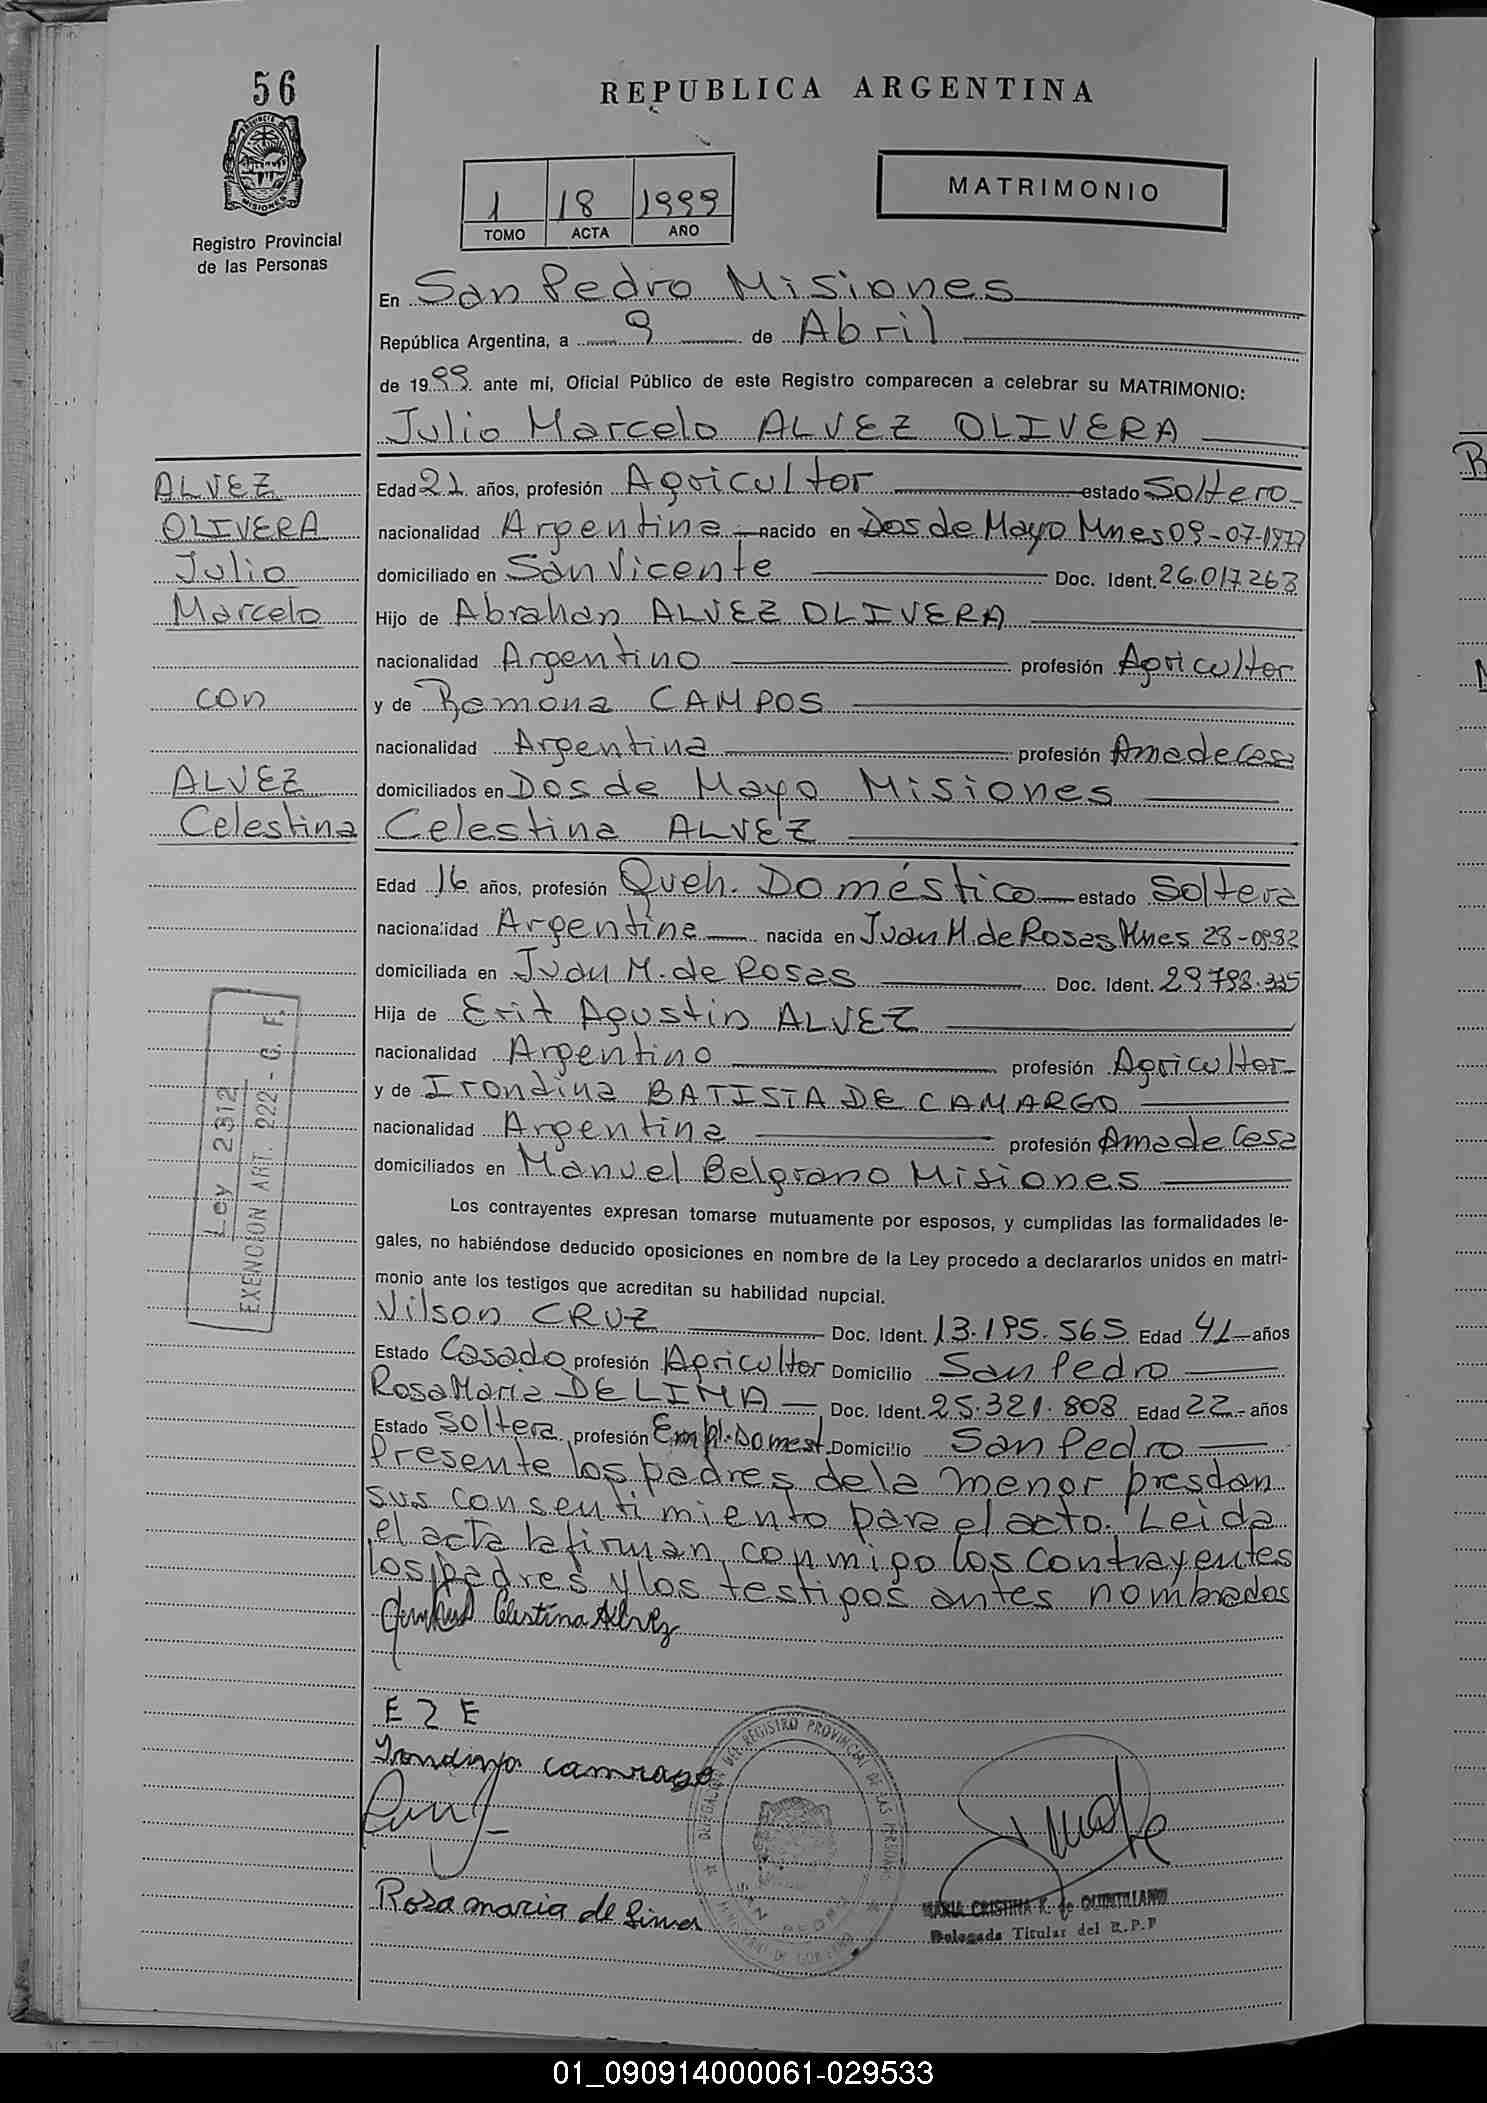 56
REPUBLICA ARGENTINA
PROVINCIA DE
MISIONES
Registro Provincial
de las Personas
1 18 1999
TOMO ACTA AÑO
MATRIMONIO
En San Pedro Misiones
República Argentina, a 9 de Abril
de 1999 ante mi, Oficial Público de este Registro comparecen a celebrar su MATRIMONIO:
Julio Marcelo ALVEZ OLIVERA
ALVEZ
OLIVERA
Julio
Marcelo
con
ALVEZ
Celestina
Edad 21 años, profesión Agricultor estado Soltero
nacionalidad Argentina nacido en Dos de Mayo Mnes 09-07-1977
domiciliado en San Vicente Doc. Ident. 26.017.263
Hijo de Abrahan ALVEZ OLIVERA
nacionalidad Argentino profesión Agricultor
y de Ramona CAMPOS
nacionalidad Argentina profesión Ama de Casa
domiciliados en Dos de Mayo Misiones
Celestina ALVEZ
Edad 16 años, profesión Queh. Doméstico estado Soltera
nacionalidad Argentina nacida en Juan M. de Rosas Mnes 28-09-82
domiciliada en Juan M. de Rosas Doc. Ident.
Hija de Erit Agustin ALVEZ
nacionalidad Argentino profesión Agricultor
y de Irondina BATISTA DE CAMARGO
nacionalidad Argentina profesión Ama de Casa
domiciliados en Manuel Belgrano Misiones
Ley 2312
EXENCION ART. 222 - C. F.
Los contrayentes expresan tomarse mutuamente por esposos, y cumplidas las formalidades le-
gales, no habiéndose deducido oposiciones en nombre de la Ley procedo a declararlos unidos en matri-
monio ante los testigos que acreditan su habilidad nupcial.
Vilson CRUZ Doc. Ident. 13.195.565 Edad 41 años
Estado Casado profesión Agricultor Domicilio San Pedro
Rosa Maria DE LIMA Doc. Ident. 25.321.808 Edad 22 años
Estado Soltera profesión Empl. Domest. Domicilio San Pedro
Presente los padres de la menor presdan
sus consentimiento para el acto. Leida
el acta la firman conmigo los contrayentes
los padres y los testigos antes nombrados
Celestina Alvez
E Z E
Irondina camrago
Rosa maria de Lima
DELEGACION DEL REGISTRO PROVINCIAL DE LAS PERSONAS
SAN PEDRO
MINISTERIO DE GOBIERNO
MARIA CRISTINA K. de QUINTILLAN
Delegada Titular del R.P.P
01_090914000061-029533